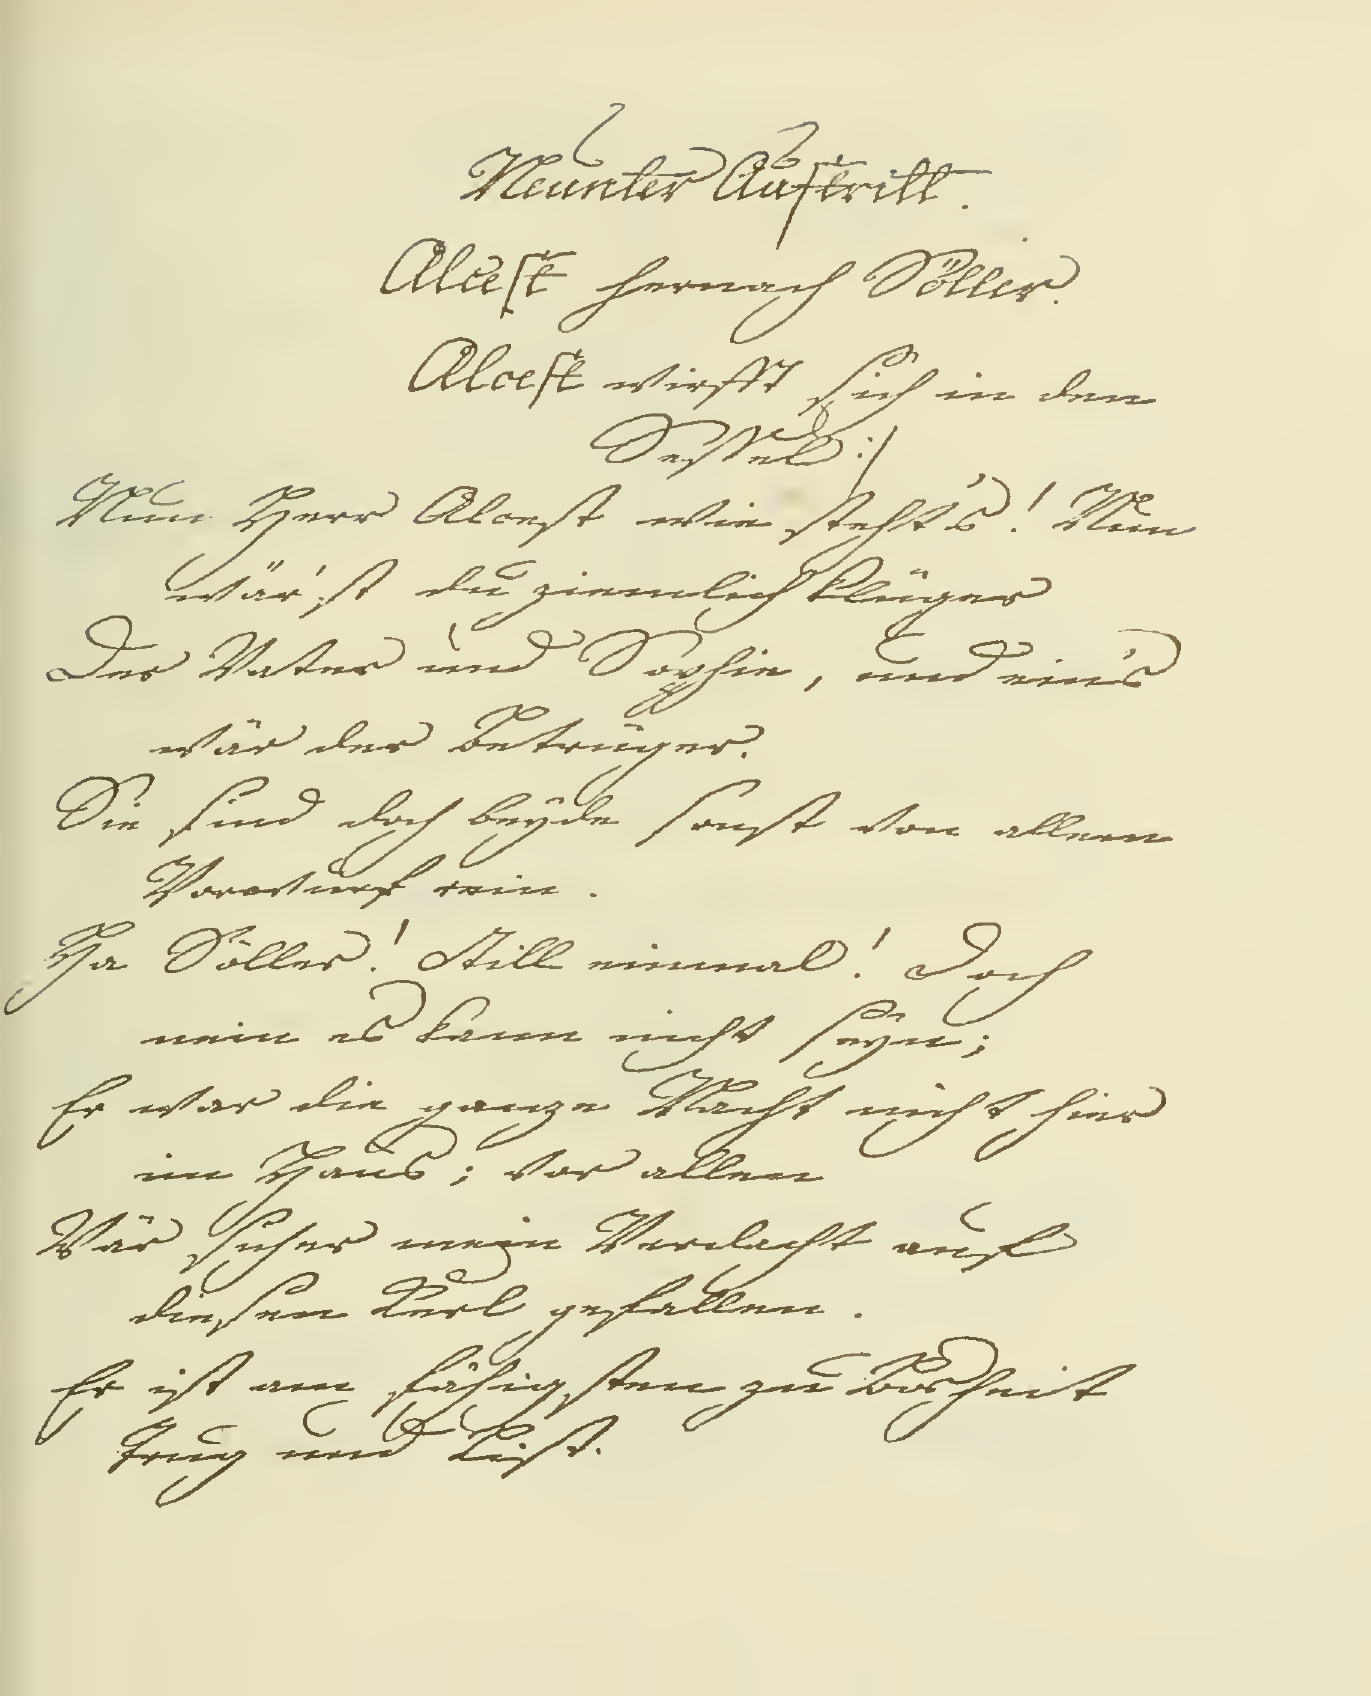 Neunter Auftritt.
Alcest hernach Söller.
Alcest wirfft sich in den
Sessel :/
Nun Herr Alcest wie steht's! Nun
wär'st du ziemlich klüger
Der Vater und Sophie, und ein's
wär der Betrüger.
Sie sind doch beyde sonst von allem
Vorwurf rein.
Ha Söller! Still einmal! Doch
nein es kann nicht seyn;
Er war die ganze Nacht nicht hier
im Haus; vor allen
Wär sicher mein Verdacht auf
diesen Kerl gefallen.
Er ist am fähigsten zu Bosheit
Trug und List.